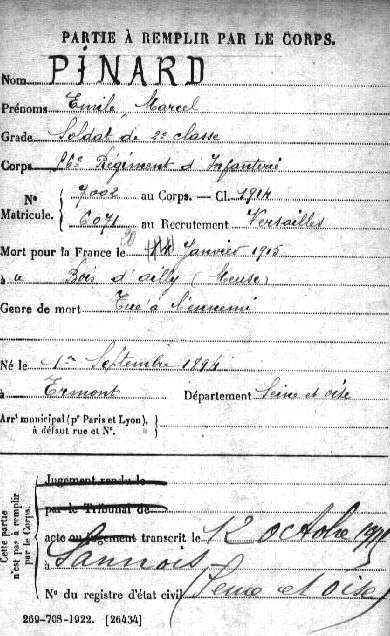 PARTIE À REMPLIR PAR LE CORPS.
Nom PINARD
Prénoms Emile, Marcel
Grade Soldat de 2e classe
Corps Régiment d'Infanterie
Nº Matricule. 7002 au Corps. — Cl. 1914
6071 au Recrutement Versailles
Mort pour la France le 20 Janvier 1915
à Bois d'ailly (Meuse)
Genre de mort Tué à l'ennemi
Né le 1er Septembre 1894
à Ermont Département Seine et oise
Arrt municipal (pr Paris et Lyon), à défaut rue et Nº.
Cette partie n'est pas à remplir par le Corps.
Jugement rendu le
par le Tribunal de
acte ou jugement transcrit le 12 Octobre
à Sannois
Nº du registre d'état civil (Seine et Oise)
269-708-1922. [26434]